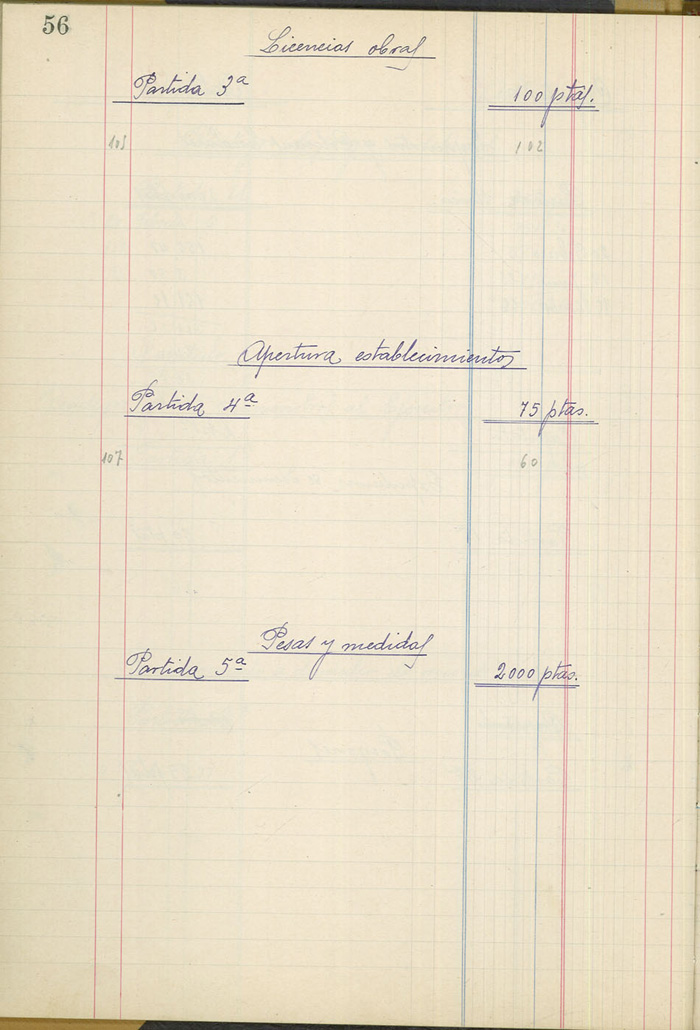 56
Licencias obras
Partida 3ª 100 ptas.
102
Apertura establecimientos
Partida 4ª 75 ptas.
107 60
Pesas y medidas
Partida 5ª 2000 ptas.